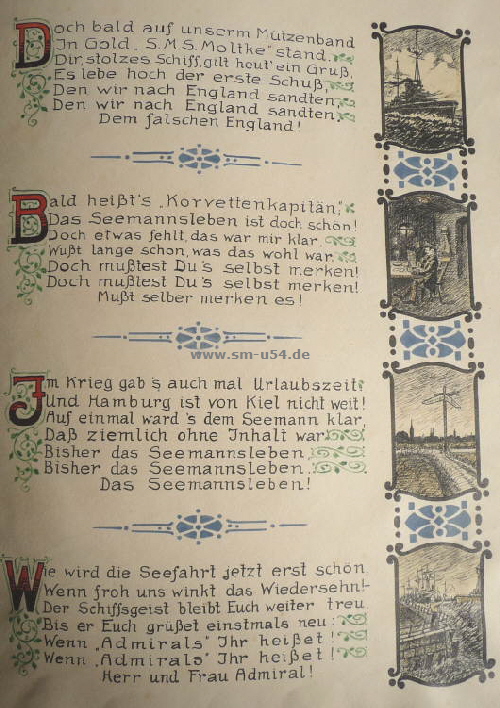 Doch bald auf unserm Mützenband
In Gold „S.M.S. Moltke" stand.
Dir, stolzes Schiff, gilt heut' ein Gruß,
Es lebe hoch der erste Schuß,
Den wir nach England sandten,
Den wir nach England sandten,
Dem falschen England!
Bald heißt's „Korvettenkapitän,"
Das Seemannsleben ist doch schön!
Doch etwas fehlt, das war mir klar,
Wußt lange schon, was das wohl war.
Doch mußtest Du's selbst merken!
Doch mußtest Du's selbst merken!
Mußt selber merken es!
www.sm-u54.de
Im Krieg gab's auch mal Urlaubszeit,
Und Hamburg ist von Kiel nicht weit!
Auf einmal ward's dem Seemann klar,
Daß ziemlich ohne Inhalt war
Bisher das Seemannsleben,
Bisher das Seemannsleben,
Das Seemannsleben!
Wie wird die Seefahrt jetzt erst schön
Wenn froh uns winkt das Wiedersehn!
Der Schiffsgeist bleibt Euch weiter treu
Bis er Euch grüßet einstmals neu:
Wenn „Admirals" Ihr heißet!
Wenn „Admirals" Ihr heißet!
Herr und Frau Admiral!